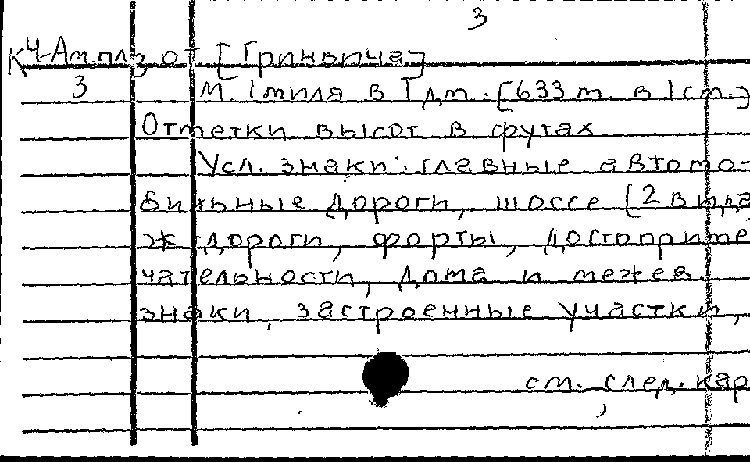 3
К4-Англ. от [Гринвича]
3 М. 1 миля в 1 дм. [633 м. в 1 см.]
Отметки высот в футах
Усл. знаки: главные автомо-
бильные дороги, шоссе [2 вида
ж дороги, форты, достоприме
чательности, дома и межев.
знаки, застроенные участки,
см. след. кар